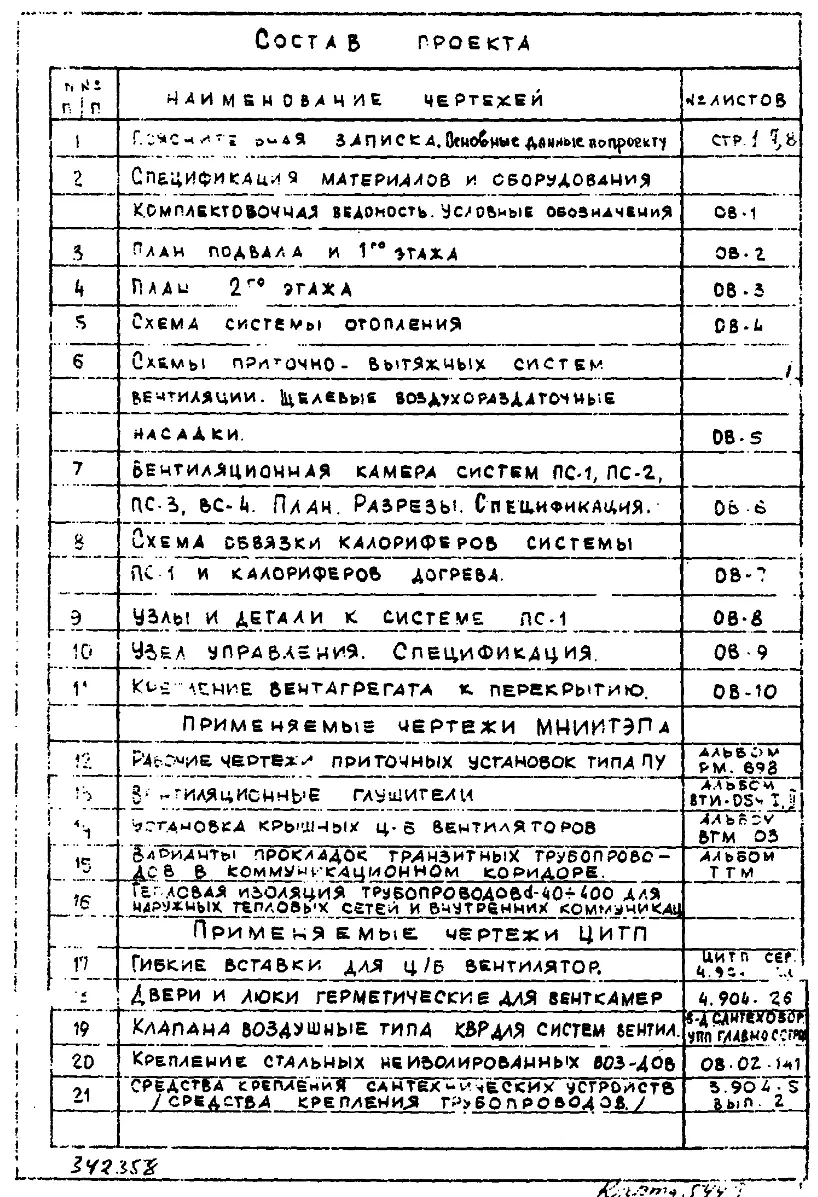 СОСТАВ ПРОЕКТА
№№ П/П НАИМЕНОВАНИЕ ЧЕРТЕЖЕЙ №ЛИСТОВ
1 ЗАПИСКА. Основные данные по проекту СТР. 1 7,8
2 СПЕЦИФИКАЦИЯ МАТЕРИАЛОВ И ОБОРУДОВАНИЯ
КОМПЛЕКТОВОЧНАЯ ВЕДОМОСТЬ. УСЛОВНЫЕ ОБОЗНАЧЕНИЯ ОВ-1
3 ПЛАН ПОДВАЛА И 1ГО ЭТАЖА ОВ-2
4 ПЛАН 2ГО ЭТАЖА ОВ-3
5 СХЕМА СИСТЕМЫ ОТОПЛЕНИЯ ОВ-4
6 СХЕМЫ ПРИТОЧНО-ВЫТЯЖНЫХ СИСТЕМ
ВЕНТИЛЯЦИИ. ЩЕЛЕВЫЕ ВОЗДУХОРАЗДАТОЧНЫЕ
НАСАДКИ. ОВ-5
7 ВЕНТИЛЯЦИОННАЯ КАМЕРА СИСТЕМ ПС-1, ПС-2,
ПС-3, ВС-4. ПЛАН. РАЗРЕЗЫ. СПЕЦИФИКАЦИЯ. ОВ-6
8 СХЕМА ОБВЯЗКИ КАЛОРИФЕРОВ СИСТЕМЫ
ПС-1 И КАЛОРИФЕРОВ ДОГРЕВА. ОВ-7
9 УЗЛЫ И ДЕТАЛИ К СИСТЕМЕ ПС-1 ОВ-8
10 УЗЕЛ УПРАВЛЕНИЯ. СПЕЦИФИКАЦИЯ. ОВ-9
11 КРЕПЛЕНИЕ ВЕНТАГРЕГАТА К ПЕРЕКРЫТИЮ. ОВ-10
ПРИМЕНЯЕМЫЕ ЧЕРТЕЖИ МНИИТЭПА
12 РАБОЧИЕ ЧЕРТЕЖИ ПРИТОЧНЫХ УСТАНОВОК ТИПА ПУ АЛЬБОМ РМ. 698
ВЕНТИЛЯЦИОННЫЕ ГЛУШИТЕЛИ АЛЬБОМ
УСТАНОВКА КРЫШНЫХ Ц-Б ВЕНТИЛЯТОРОВ АЛЬБОМ ВТМ 03
15 ВАРИАНТЫ ПРОКЛАДОК ТРАНЗИТНЫХ ТРУБОПРОВО-
ДОВ В КОММУНИКАЦИОННОМ КОРИДОРЕ. АЛЬБОМ ТТМ
16 ТЕПЛОВАЯ ИЗОЛЯЦИЯ ТРУБОПРОВОДОВ d-40÷400 ДЛЯ
НАРУЖНЫХ ТЕПЛОВЫХ СЕТЕЙ И ВНУТРЕННИХ КОММУНИКАЦ
ПРИМЕНЯЕМЫЕ ЧЕРТЕЖИ ЦИТП
17 ГИБКИЕ ВСТАВКИ ДЛЯ Ц/Б ВЕНТИЛЯТОР. ЦИТП СЕР.
ДВЕРИ И ЛЮКИ ГЕРМЕТИЧЕСКИЕ ДЛЯ ВЕНТКАМЕР 4.904-26
19 КЛАПАНА ВОЗДУШНЫЕ ТИПА КВР ДЛЯ СИСТЕМ ВЕНТИЛ. З-Д САНТЕХОБОР УПП
20 КРЕПЛЕНИЕ СТАЛЬНЫХ НЕИЗОЛИРОВАННЫХ ВОЗ-ДОВ ОВ-02-141
21 СРЕДСТВА КРЕПЛЕНИЯ САНТЕХНИЧЕСКИХ УСТРОЙСТВ
/СРЕДСТВА КРЕПЛЕНИЯ ТРУБОПРОВОДОВ./ 3.904-5 ВЫП. 2
342358